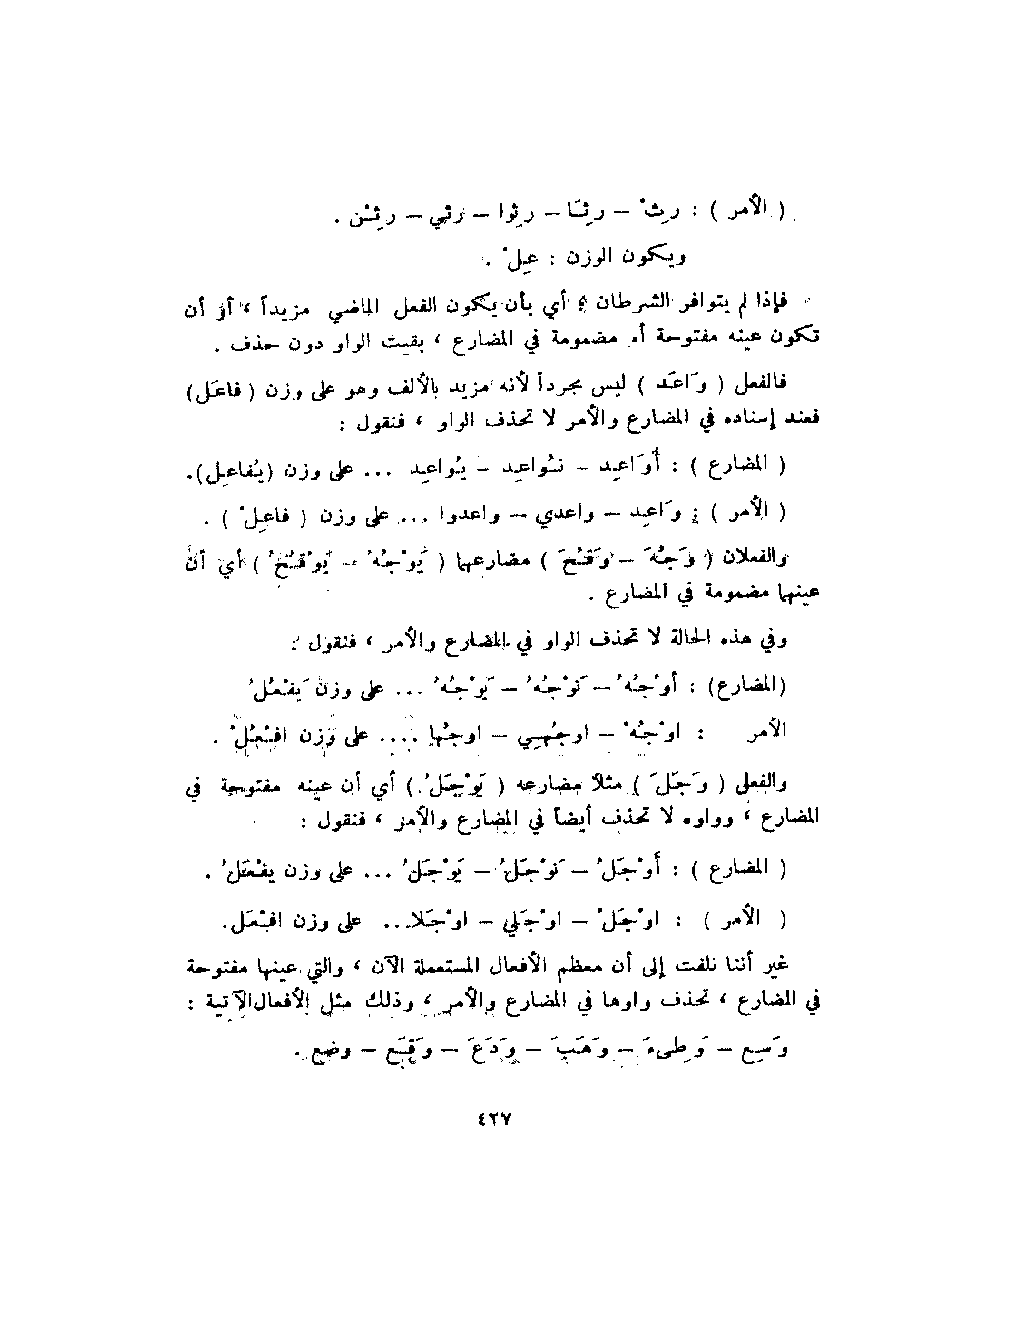 ( الأمر ) : رِثْ – رِثَا – رِثوا – رثي – رِثْن .
ويكون الوزن : عِلْ .
فإذا لم يتوافر الشرطان ؛ أي بأن يكون الفعل الماضي مزيداً ، أو أن
تكون عينه مفتوحة أو مضمومة في المضارع ، بقيت الواو دون حذف .
فالفعل ( وَاعَد ) ليس مجرداً لأنه مزيد بالألف وهو على وزن ( فاعَل)
فعند إسناده في المضارع والأمر لا تحذف الواو ، فنقول :
( المضارع ) : أُوَاعِد – نُواعِد – يُواعِد ... على وزن (يُفاعِل).
( الأمر ) : وَاعِد – واعدي – واعدوا ... على وزن ( فاعِلْ ) .
والفعلان ( وَجُهَ – وَقُحَ ) مضارعهما ( يَوْجُهُ – يَوْقُحُ ) أي أن
عينهما مضمومة في المضارع .
وفي هذه الحالة لا تحذف الواو في المضارع والأمر ، فنقول :
(المضارع) : أَوْجُهُ – نَوْجُهُ – يَوْجُهُ ... على وزن يَفْعُلُ
الأمر : اوْجُهْ – اوجُهي – اوجُها .... على وزن افْعُلْ .
والفعل ( وَجَلَ ) مثلاً مضارعه ( يَوْجَلُ ) أي أن عينه مفتوحة في
المضارع ، وواوه لا تحذف أيضاً في المضارع والأمر ، فنقول :
( المضارع ) : أَوْجَلُ – نَوْجَلُ – يَوْجَلُ ... على وزن يفْعَلُ .
( الأمر ) : اوْجَلْ – اوْجَلي – اوْجَلا... على وزن افْعَل.
غير أننا نلفت إلى أن معظم الأفعال المستعملة الآن ، والتي عينها مفتوحة
في المضارع ، تحذف واوها في المضارع والأمر ، وذلك مثل الأفعال الآتية :
وَسِع – وَطِىءَ – وَهَبَ – وَدَعَ – وَقَع – وضع .
٤٢٧